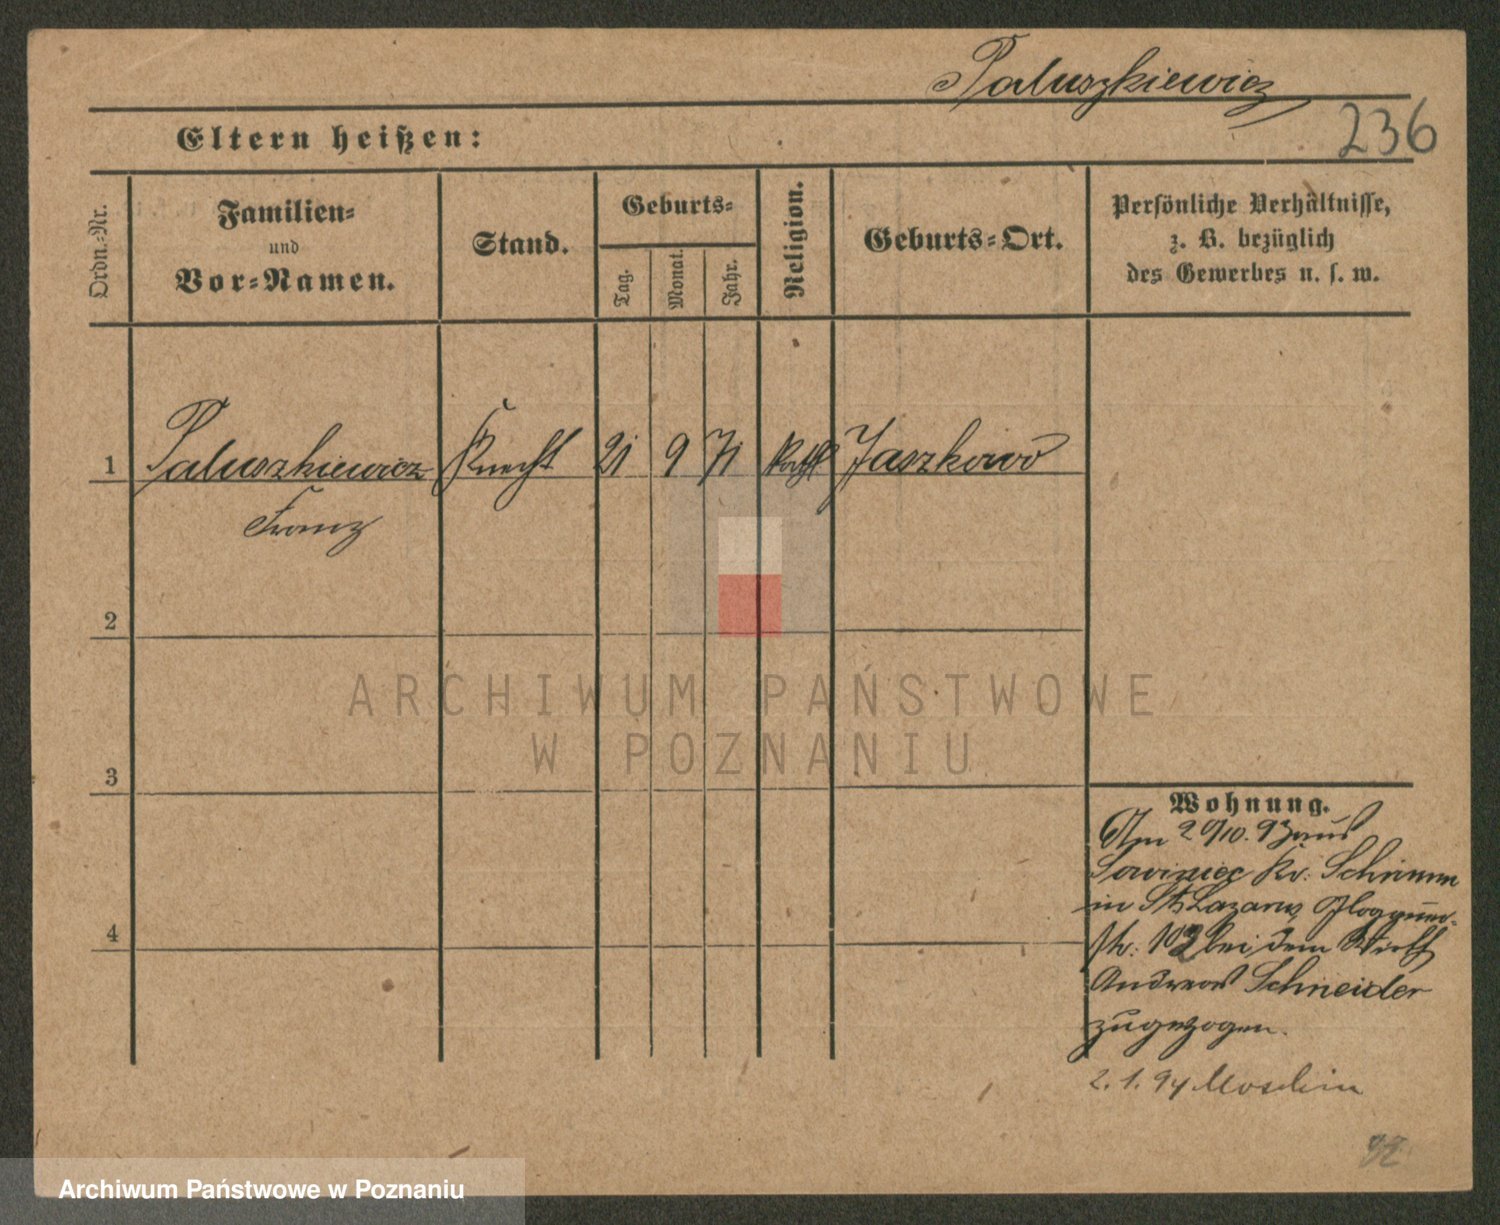 Paluszkiewicz
236
Eltern heißen:
Ordn.=Nr.
Familien=
und
Vor=Namen.
Stand.
Geburts=
Tag.
Monat.
Jahr.
Religion.
Geburts=Ort.
Persönliche Verhältnisse,
z. B. bezüglich
des Gewerbes u. s. w.
1 Paluszkiewicz Knecht 21 9 71 kath Jaszkowo
Franz
2
3
4
Wohnung.
Am 20/10. 93 aus
Sowiniec Kr. Schrimm
in St. Lazarus, Glogauer-
str. 102 bei dem Wirth
Andreas Schneider
zugezogen.
2. 1. 94 Moschin
ARCHIWUM PAŃSTWOWE
W POZNANIU
Archiwum Państwowe w Poznaniu